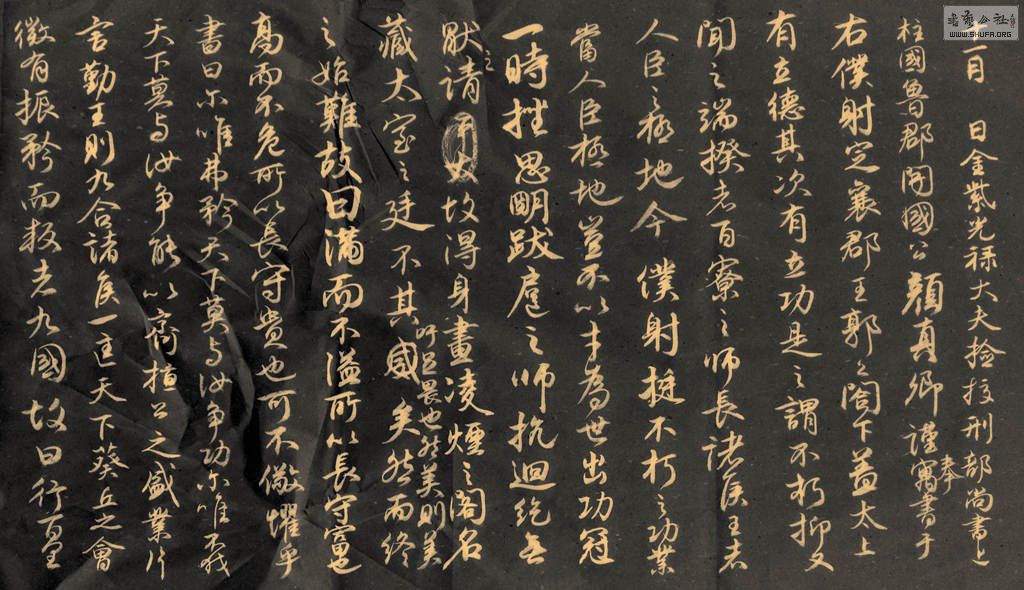 月 日金紫光祿大夫檢校刑部尚書上
柱國魯郡開國公顏真卿謹奉寓書于
右僕射定襄郡王郭公閣下蓋太上
有立德其次有立功是之謂不朽抑又
聞之端揆者百寮之師長諸侯王者
人臣之極地今僕射挺不朽之功業
當人臣極地豈不以才為世出功冠
一時挫思明跋扈之師抗迴紇無
厭之請故得身畫凌煙之閣名
藏太室之廷不其盛矣然而終
吁足畏也然美則美
之始難故曰滿而不溢所以長守富也
高而不危所以長守貴也可不儆懼乎
書曰爾唯弗矜天下莫與汝爭功爾唯不伐
天下莫與汝爭能以齊桓公之盛業片
言勤王則九合諸侯一匡天下葵丘之會
微有振矜而叛者九國故曰行百里
書藝公社
WWW.SHUFA.ORG